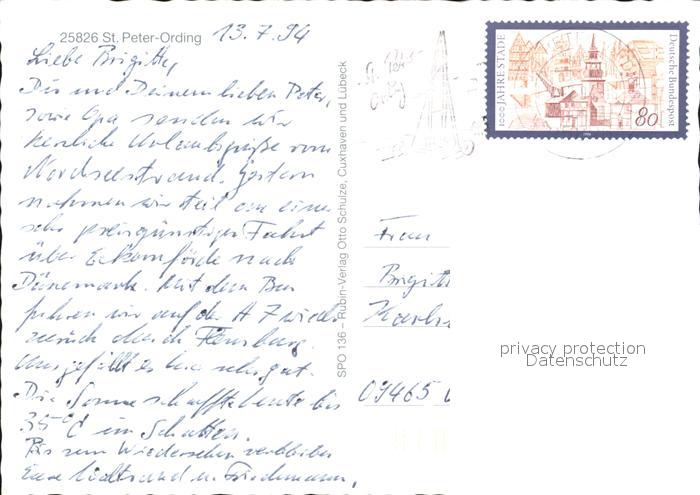 25826 St. Peter-Ording 13.7.94
Liebe Brigitte,
Dir und Deinem lieben Peter,
sowie Opa senden wir
herzliche Urlaubsgrüße vom
Nordseestrand. Gestern
nahmen wir teil an einer
sehr preisgünstigen Fahrt
über Eckernförde nach
Dänemark. Mit dem Bus
fuhren wir auf der A 7 wieder
zurück durch Flensburg.
Uns gefällt es hier sehr gut.
Die Sonne schaffte heute bis
35°C im Schatten.
Bis zum Wiedersehen verbleiben
Eure u. Friedemann,
SPO 136 – Rubin-Verlag Otto Schulze, Cuxhaven und Lübeck
1000 JAHRE STADE
Deutsche Bundespost
80
Frau
Brigitt
09465
privacy protection
Datenschutz